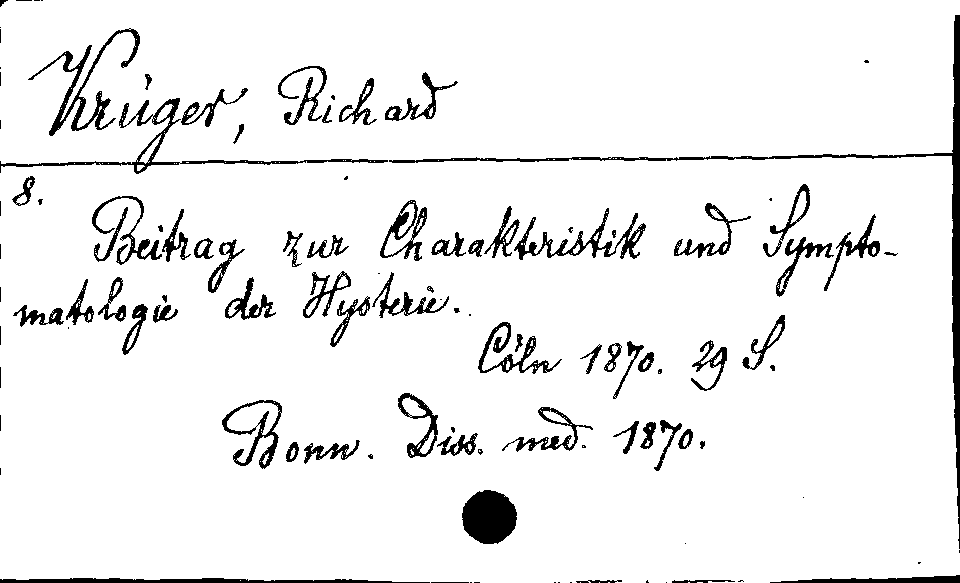 Krüger, Richard
8.
Beitrag zur Charakteristik und Sympto-
matologie der Hysterie.
Cöln 1870. 29 S.
Bonn. Diss. med. 1870.